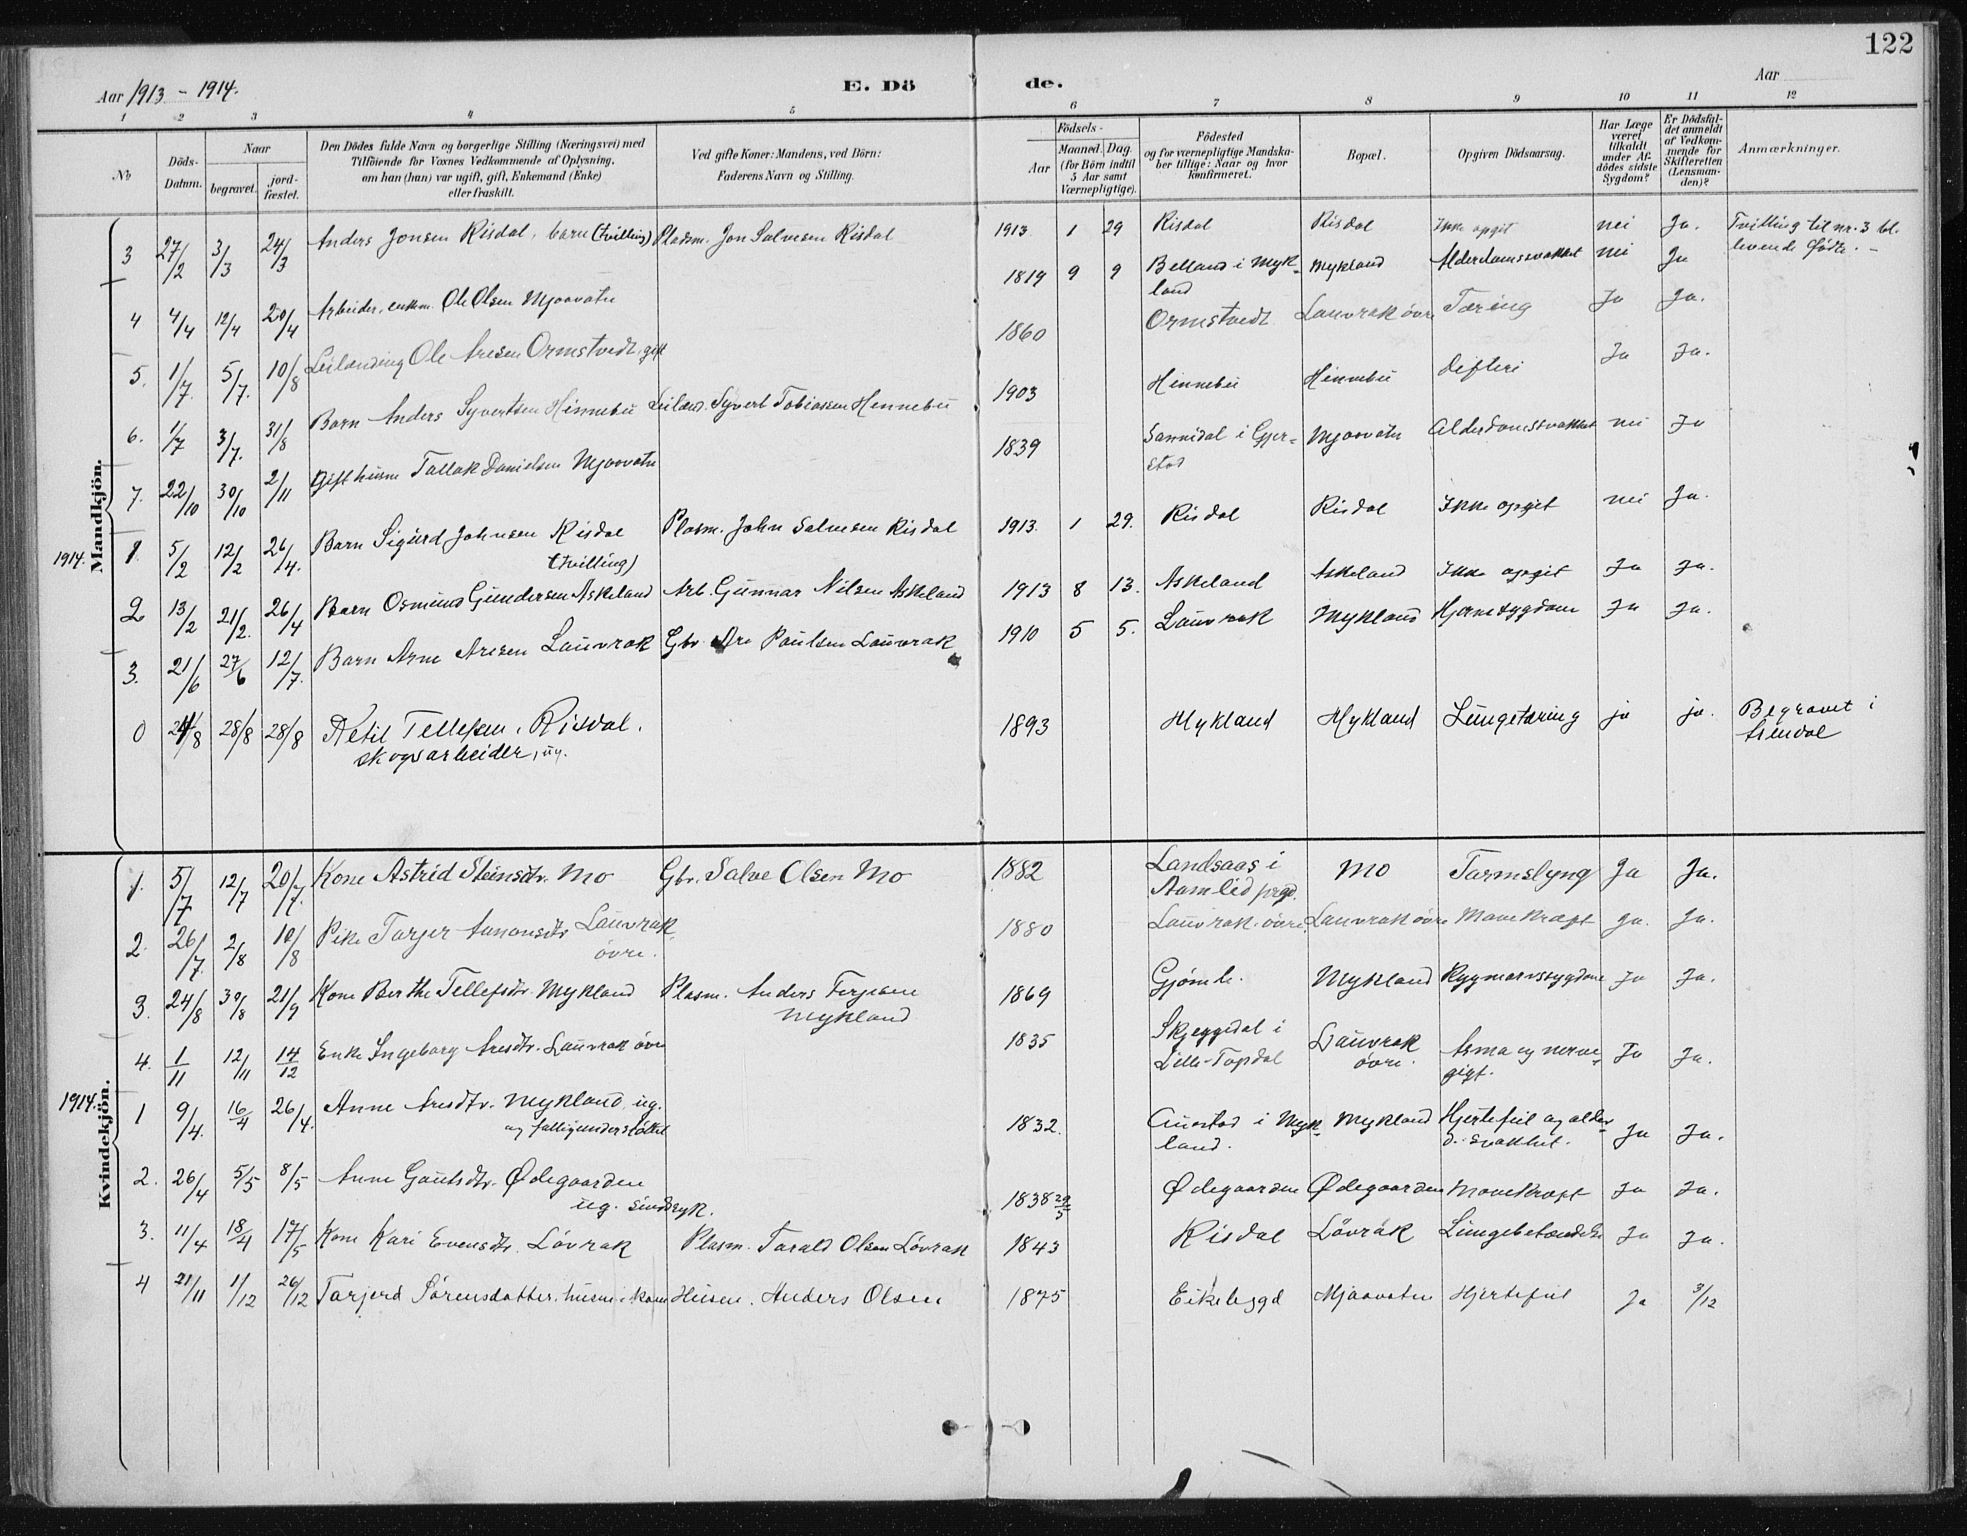 122
Aar 1913 - 1914. E. Dö de. Aar
1 2 3 4 5 6 7 8 9 10 11 12
No Döds-Datum. Naar begravet. jord-fæstet. Den Dödes fulde Navn og borgerlige Stilling (Næringsvei) med Tilföiende for Voxnes Vedkommende af Oplysning, om han (hun) var ugift, gift, Enkemand (Enke) eller fraskilt. Ved gifte Koner: Mandens, ved Börn: Faderens Navn og Stilling. Födsels- Aar Maaned. Dag. (for Börn indtil 5 Aar samt Værnepligtige). Födested og for værnepligtige Mandskaber tillige: Naar og hvor konfirmeret. Bopæl. Opgiven Dödsaarsag. Har Læge været tilkaldt under Afdödes sidste Sygdom? Er Dödsfaldet anmeldt af Vedkommende for Skifteretten (Lensmanden)? Anmærkninger.
Mandkjön.
3 27/2 3/3 24/3 Anders Jonsen Risdal, barn (tvilling) Pladsm. Jon Salvesen Risdal 1913 1 29 Risdal Risdal Ikke opgit nei Ja. Tvilling til nr. 3 bl. levende födte. -
4 4/4 12/4 20/4 Arbeider, enkem. Ole Olsen Mjaavatn 1819 9 9 Belland i Mykland Mykland Alderdomssvakhet nei Ja
5. 1/7. 5/7. 10/8 Leilænding Ole Aresen Ormstvedt, gift 1860 Ormstvedt Lauvrak övre Tæring Ja Ja.
6. 1/7 3/7. 31/8 Barn Anders Syvertsen Hinnebu Leilænd. Syvert Tobiassen Hennebu 1903 Hinnebu Hinnebu Difteri Ja Ja.
7. 22/10 30/10 2/11 Gift husm Tallak Danielsen Mjaavatn 1839 Sannidal i Gjerstad Mjaavatn Alderdomssvakhet nei Ja
1914. 1. 5/2 12/2 26/4. Barn Sigurd Johnsen Risdal (tvilling) Plasm. John Salvesen Risdal 1913. 1 29. Risdal Risdal Ikke opgit nei Ja.
2 13/2 21/2. 26/4 Barn Osmund Gundersen Askeland Arb. Gunnar Nilsen Askeland 1913 8 13. Askeland Askeland Ikke opgit Ja Ja.
3. 21/6 27/6 12/7. Barn Arne Aresen Lauvrak Gbr. Are Paulsen Lauvrak 1910 5 5. Lauvrak Mykland Hjernesygdom Ja Ja.
0 24/8 28/8 28/8 Ketil Tellefsen, Risdal. skogsarbeider, ug. 1893 Mykland Mykland Lungetæring ja ja. Begravet i Arendal
Kvindekjön.
1. 5/7 12/7 20/7. Kone Astrid Steinsdtr. Mo Gbr. Salve Olsen Mo 1882 Landsaas i Aamlid prgd. Mo Tarmslyng Ja Ja.
2. 26/7. 2/8 10/8 Pike Tarjer Aanonsdtr Lauvrak, övre. 1880 Lauvrak. övre. Lauvrak övre Mavekræft Ja. Ja.
3. 24/8 30/8 21/9 Kone Berthe Tellefsdtr. Mykland Plasm. Anders Terjesen Mykland 1869 Gjömle. Mykland Rygmarvssygdom Ja Ja.
4. 1/11 12/11 14/12 Enke Ingeborg Aresdtr. Lauvrak övre 1835 Skjeggedal i Lille-Topdal Lauvrak övre. Asma og nervegigt. Ja Ja.
1914. 1 9/4. 16/4 26/4. Anne Aresdtr. Mykland, ug. og fattigunderstöttet 1832. Austad i Mykland. Mykland Hjertefeil og alderd. svakhet. Ja Ja.
2. 26/4 5/5 8/5 Anne Gautsdtr. Ödegaarden ug. sindssyk. 1838 29/5 Ödegaarden Ödegaarden Mavekræft Ja Ja.
3. 11/4 18/4 17/5 Kone Kari Evensdtr. Lövrak Plasm. Tarald Olsen Lövrak 1843 Risdal Lövråk Lungebetændelse Ja Ja.
4 21/11 1/12 26/12 Tarjerd Sörensdatter, husm. kone Husm. Anders Olsen 1875 Eikelygd Mjaavatn Hjertefeil Ja 3/12